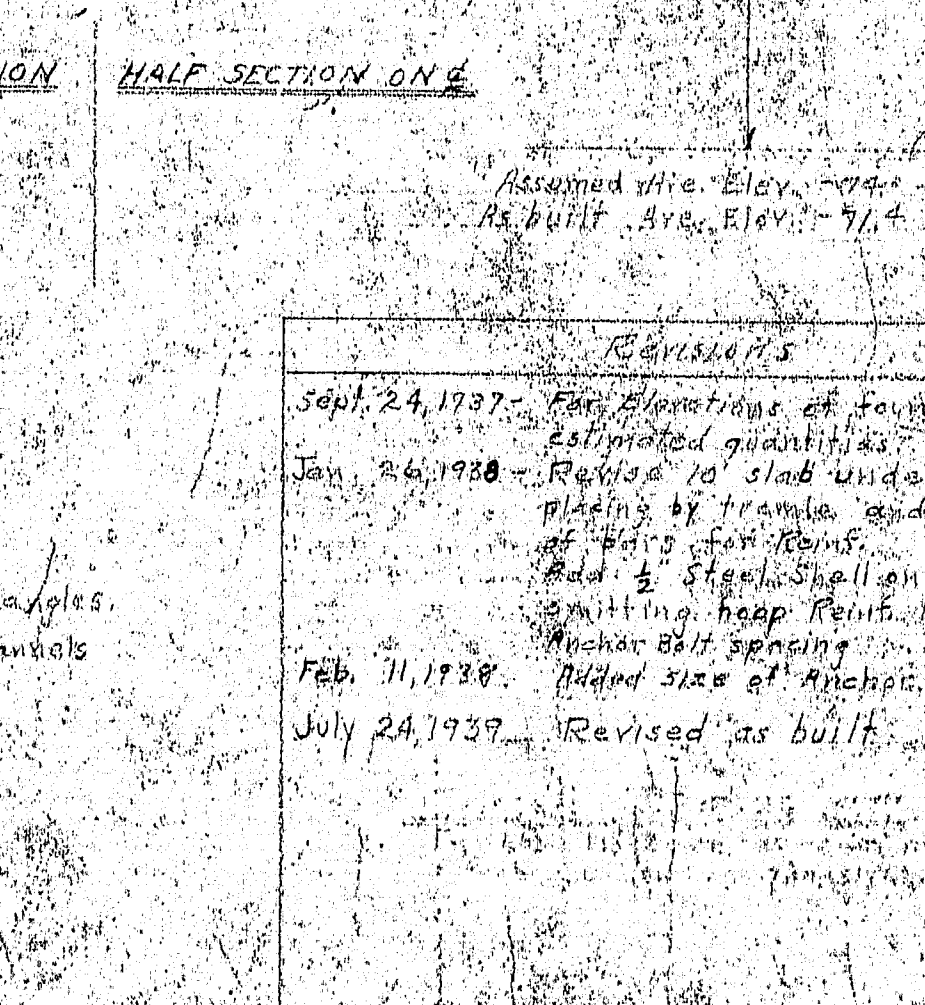 ION
HALF SECTION ON ℄
Assumed Ave. Elev. -74
As built Ave. Elev. -71.4
Revisions
Sept. 24, 1937- For Elevations of foun
estimated quantities
Jan. 26, 1938 - Revise 10' slab unde
placing by tremie and
of bars for Reinf.
Add ½" Steel Shell on
omitting hoop Reinf.
Anchor Bolt spacing
angles.
annels
Feb. 11, 1938. Added size of Anchor.
July 24, 1939 Revised as built